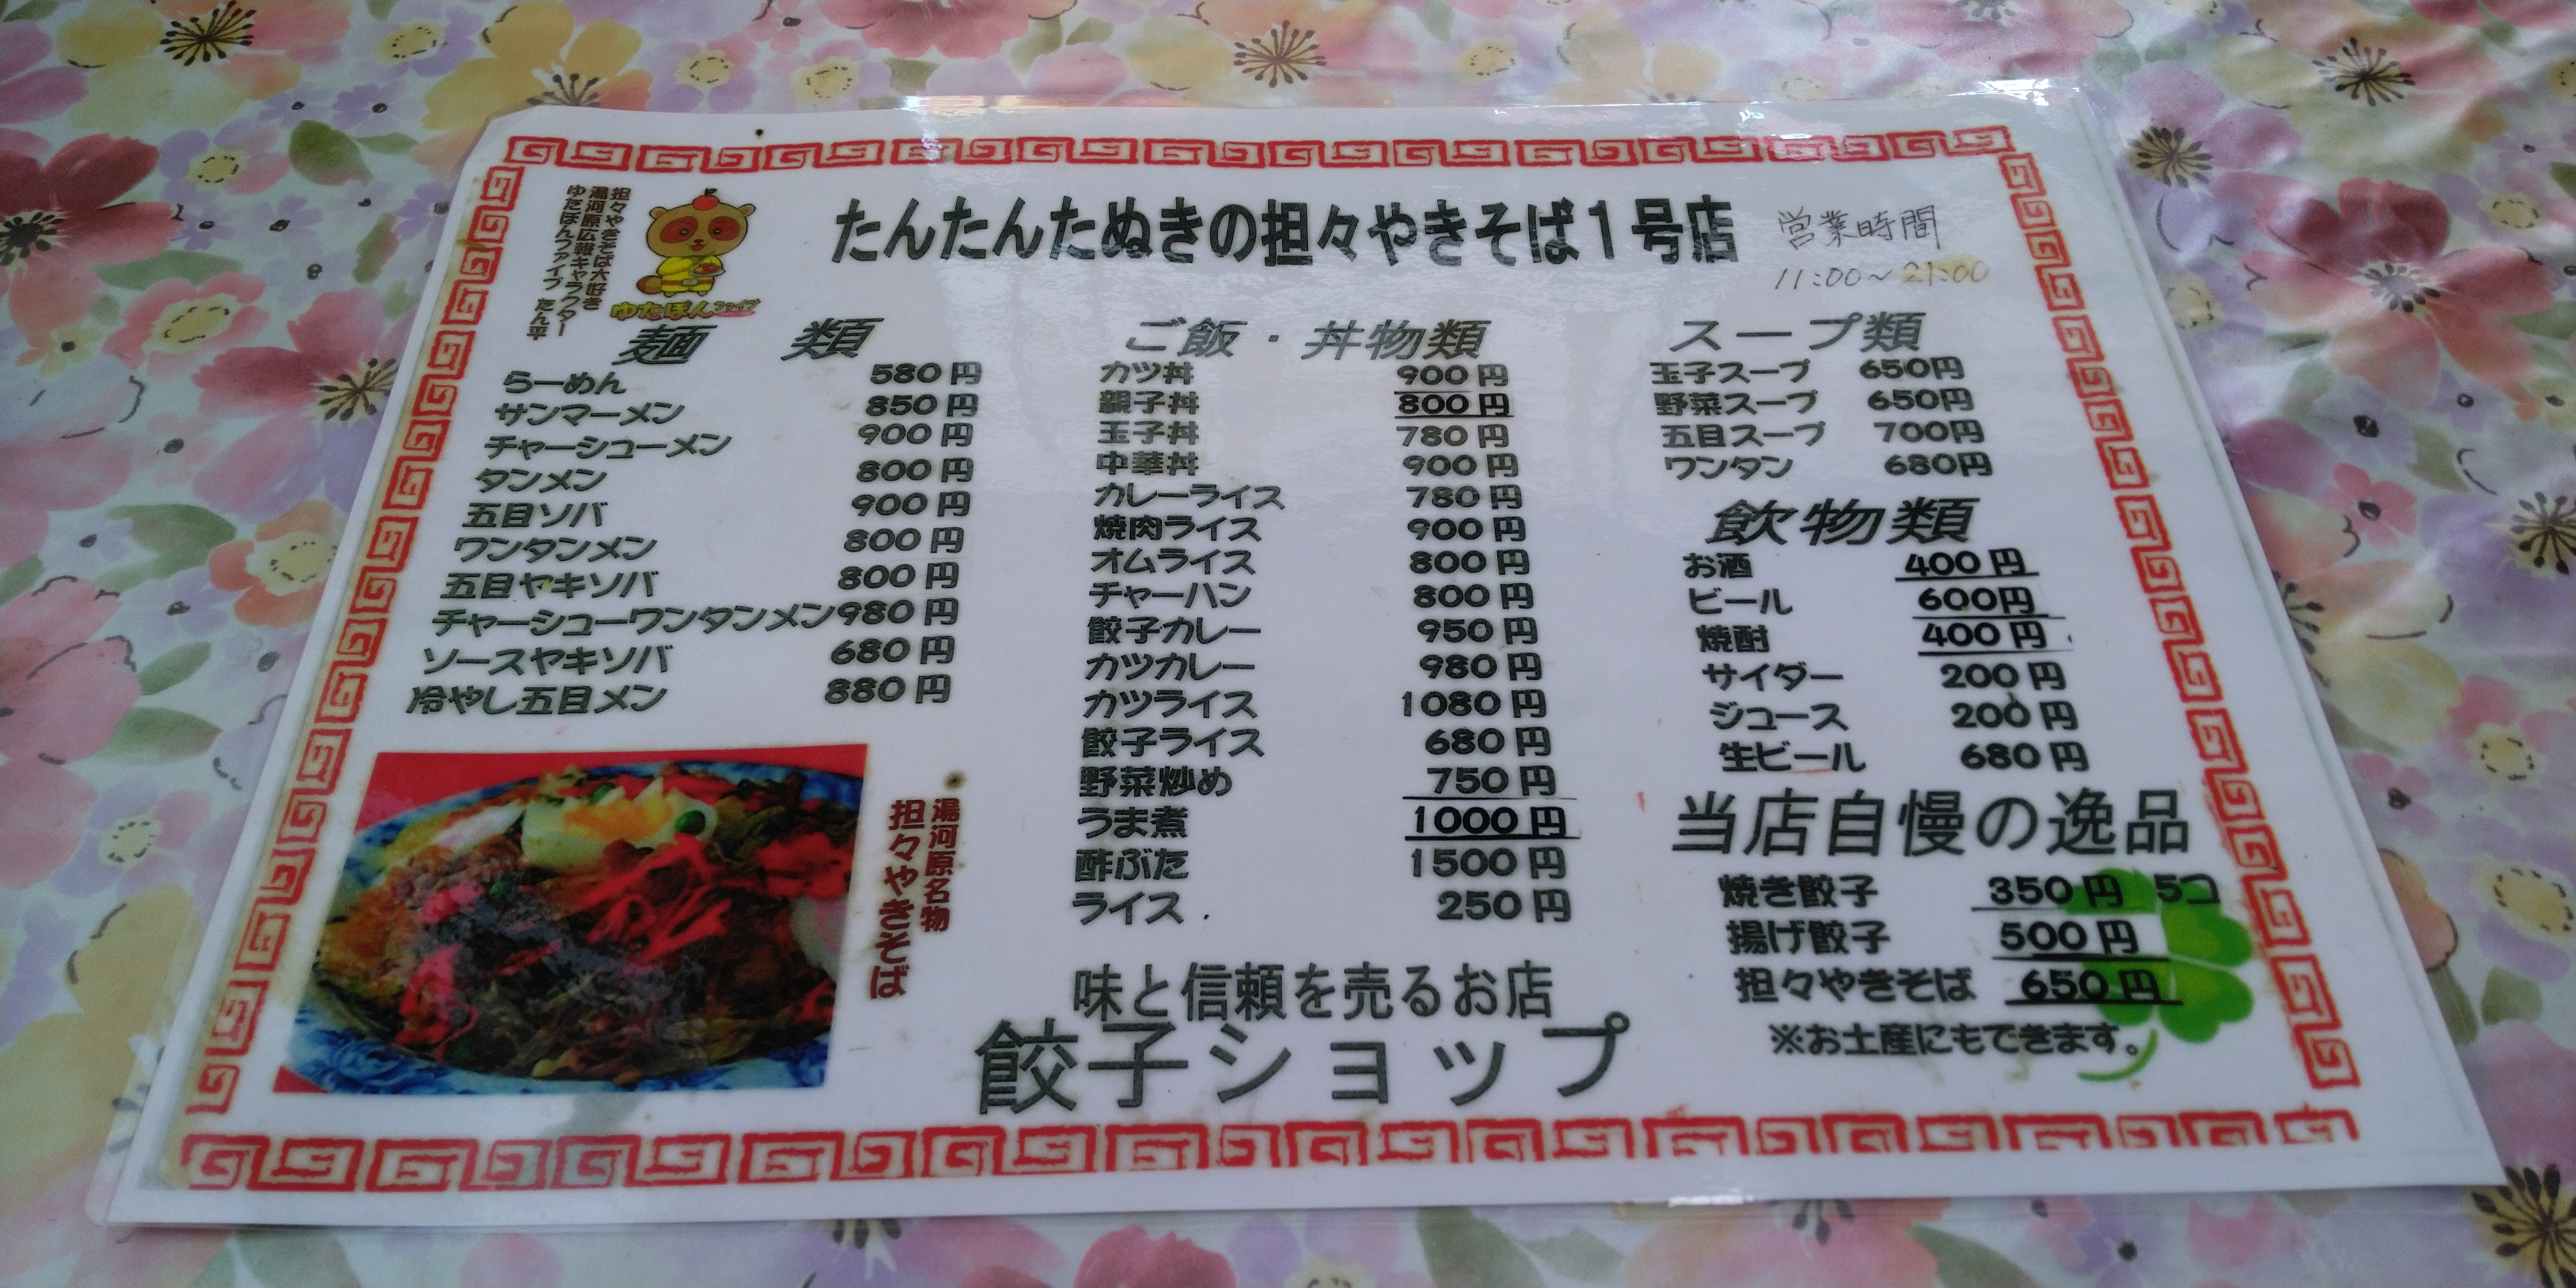 担々やきそば大好き
湯河原広報キャラクター
ゆたぽんファイブ たん平
ゆたぽんファイブ
たんたんたぬきの担々やきそば1号店
営業時間
11:00~21:00
麺 類
らーめん 580円
サンマーメン 850円
チャーシューメン 900円
タンメン 800円
五目ソバ 900円
ワンタンメン 800円
五目ヤキソバ 800円
チャーシューワンタンメン 980円
ソースヤキソバ 680円
冷やし五目メン 880円
湯河原名物
担々やきそば
ご飯・丼物類
カツ丼 900円
親子丼 800円
玉子丼 780円
中華丼 900円
カレーライス 780円
焼肉ライス 900円
オムライス 800円
チャーハン 800円
餃子カレー 950円
カツカレー 980円
カツライス 1080円
餃子ライス 680円
野菜炒め 750円
うま煮 1000円
酢ぶた 1500円
ライス 250円
味と信頼を売るお店
餃子ショップ
スープ類
玉子スープ 650円
野菜スープ 650円
五目スープ 700円
ワンタン 680円
飲物類
お酒 400円
ビール 600円
焼酎 400円
サイダー 200円
ジュース 200円
生ビール 680円
当店自慢の逸品
焼き餃子 350円 5コ
揚げ餃子 500円
担々やきそば 650円
※お土産にもできます。